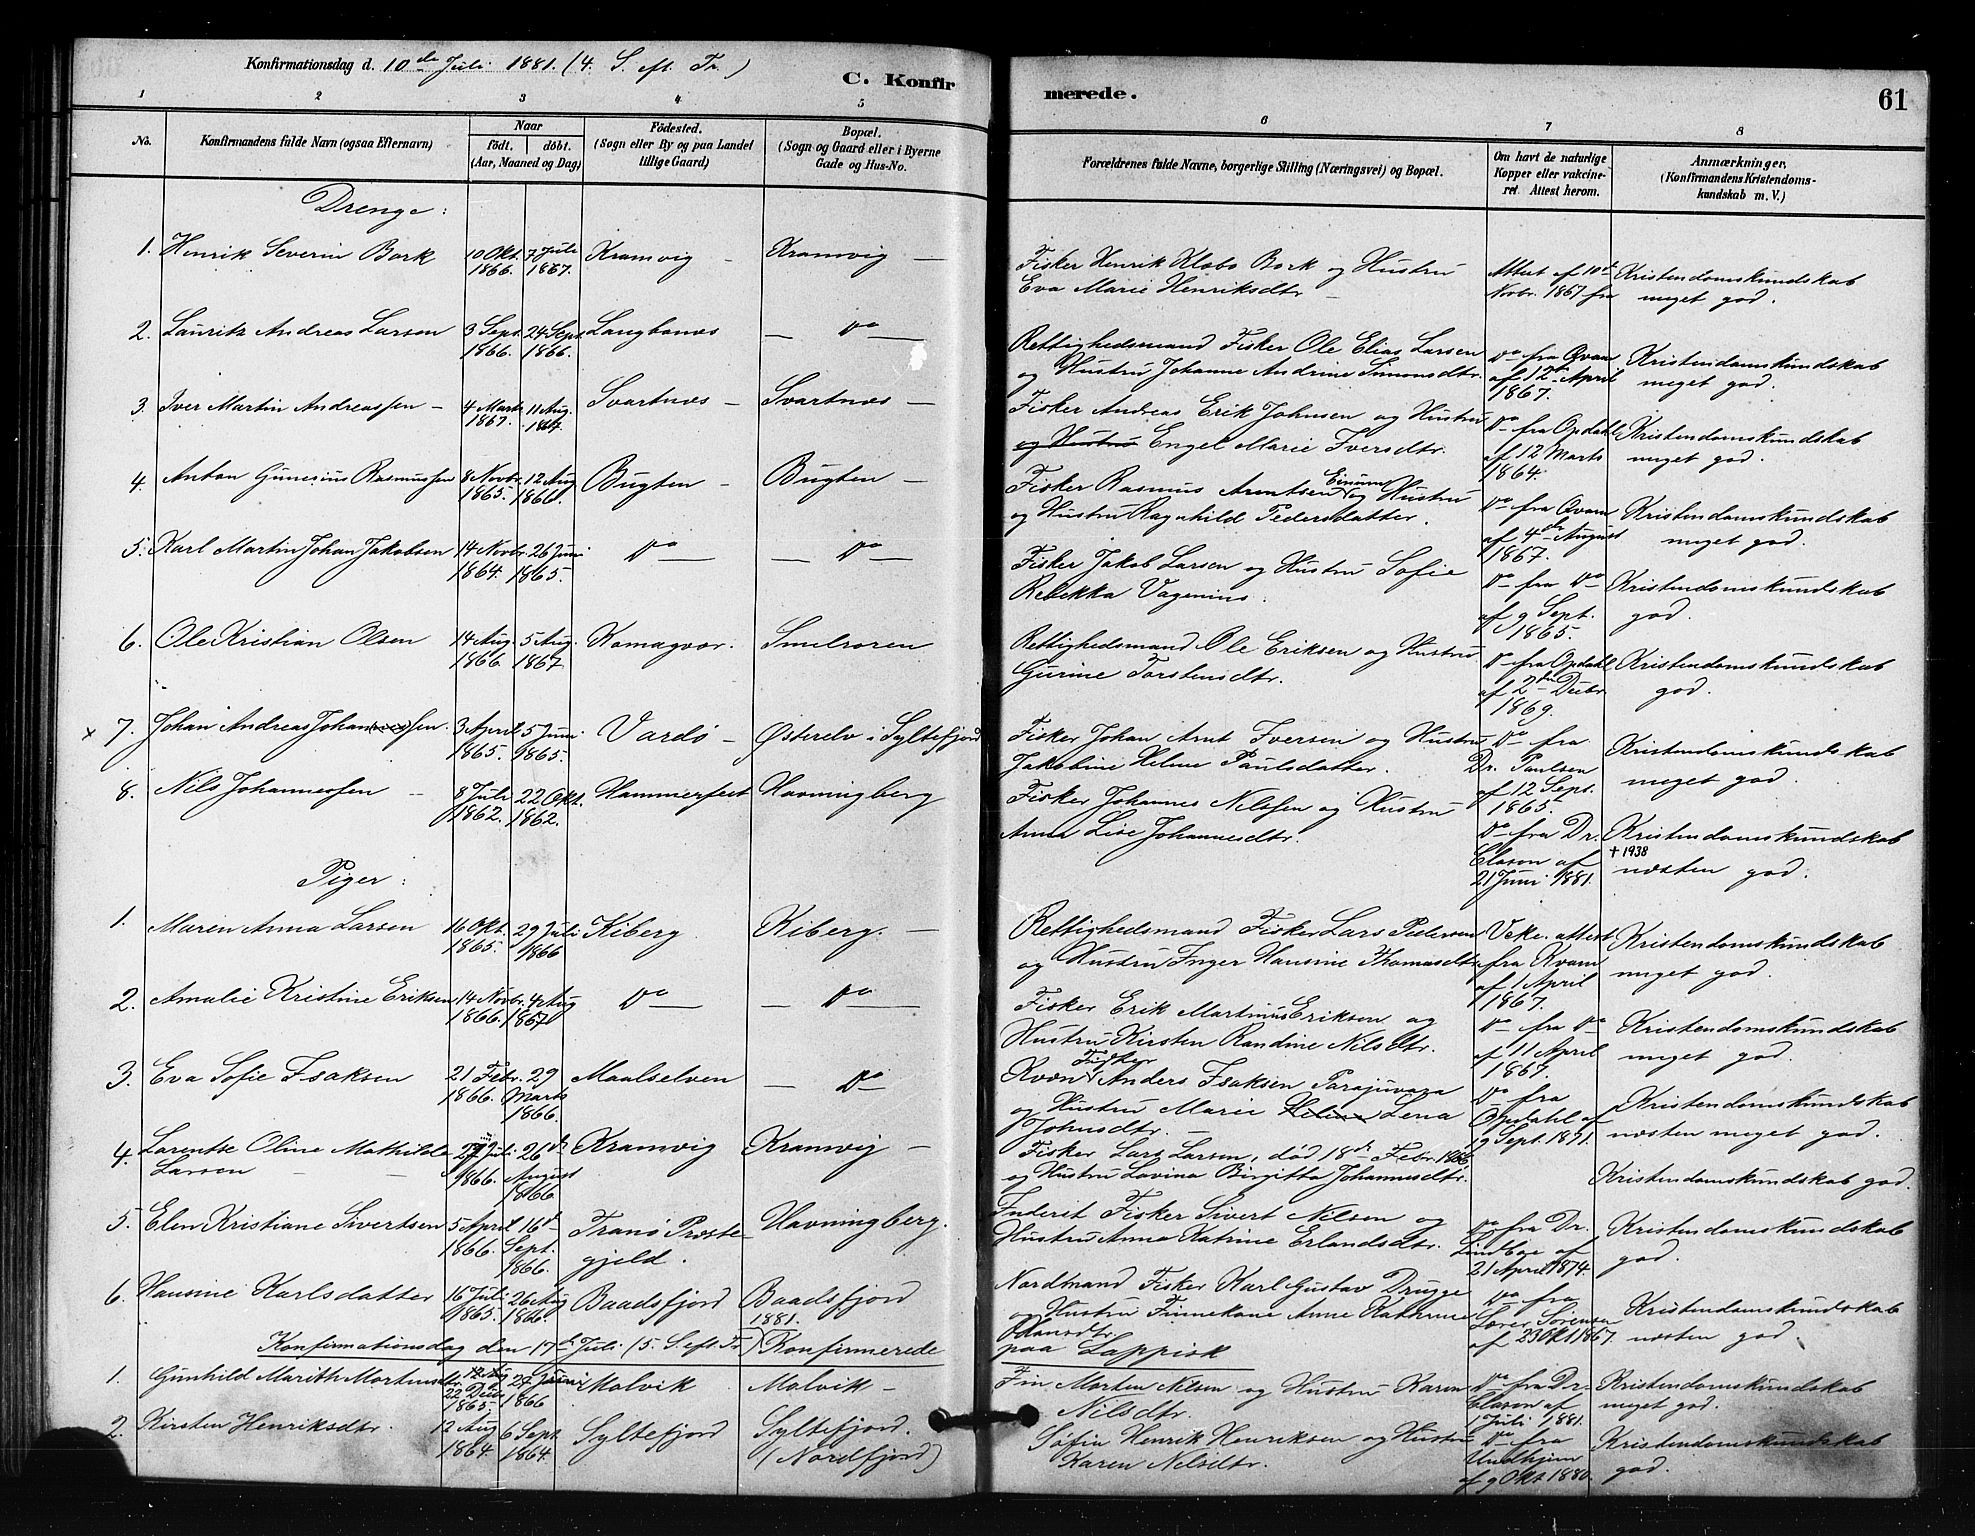 Konfirmationsdag d. 10de Juli 1881. (4. S. eft. Tr.)
C. Konfirmerede.
61
1 2 3 4 5 6 7 8
No.
Konfirmandens fulde Navn (ogsaa Efternavn)
Naar
födt. döbt.
(Aar, Maaned og Dag)
Födested.
(Sogn eller By og paa Landet
tillige Gaard)
Bopæl.
(Sogn og Gaard eller i Byerne
Gade og Hus-No.
Forældrenes fulde Navne, borgerlige Stilling (Næringsvei) og Bopæl.
Om havt de naturlige
Kopper eller vakcine-
ret. Attest herom.
Anmærkninger,
(Konfirmandens Kristendoms-
kundskab m. V.)
Drenge:
1. Henrik Severin Bork 10 Okt. 1866. 7 Juli 1867. Kramvig – Kramvig –
Fisker Henrik Klabo Bork og Hustru
Eva Marie Henriksdtr –
Attest af 10de
Novbr. 1867 fra
Kristendomskundskab
meget god.
2. Lauritz Andreas Larsen 3 Sept. 1866. 24 Sept. 1866. Langbunes – Do –
Rettighedsmand Fisker Ole Elias Larsen
og Hustru Johanne Andrine Simonsdtr.
Do fra Qvam
af 12te April
1867.
Kristendomskundskab
meget god.
3. Iver Martin Andreassen – 4 Marts 1867. 11 Aug. 1867. Svartnes – Svartnes –
Fisker Andreas Erik Johnsen og Hustru
og Hustru Engel Marie Iversdtr.
Do fra Opdahl
af 12 Marts
1864.
Kristendomskundskab
meget god.
4. Anton Gunerius Rasmussen 8 Novbr. 1865. 12 Aug 1866. Bugten – Bugten –
Fisker Rasmus Arntsen Einum og Hustru
og Hustru Ragnhild Pedersdatter.
Do fra Qvam
af 4de August
1867.
Kristendomskundskab
meget god.
5. Karl Martin Johan Jakobsen 14 Novbr. 1864. 26 Juni 1865. Do – Do –
Fisker Jakob Larsen og Hustru Sofie
Rebekka Vagenius.
Do fra Do
af 9 Sept.
1865.
Kristendomskundskab
god.
6. Ole Kristian Olsen 14 Aug. 1866. 5 Aug. 1867. Komagvær. Smelroren
Rettighedsmand Ole Eriksen og Hustru
Gurine Torstensdtr.
Do fra Opdahl
af 2den Decbr.
1869.
Kristendomskundskab
god.
x 7. Johan Andreas Johansen. 3 April 1865. 5 Juni 1865. Vardö – Österelv i Syltefjord
Fisker Johan Arnt Iversen og Hustru
Jakobine Helene Paulsdatter.
Do fra
Dr. Paulsen
af 12 Sept.
1865.
Kristendomskundskab
meget god.
8. Nils Johannessen – 8 Juli 1862. 22 Okt. 1862. Hammerfest Havningberg
Fisker Johannes Nilssen og Hustru
Anna Lise Johannesdtr.
Do fra Dr.
Clason af
21 Juni 1881.
Kristendomskundskab
† 1938
næsten god.
Piger:
1. Maren Anna Larsen 16 Okt. 1865. 29 Juli 1866 Kiberg Kiberg. –
Rettighedsmand Fisker Lars Pedersen
og Hustru Inger Hansine Thomasdtr.
Vakc. attest
fra Kvam
af 1 April
1867.
Kristendomskundskab
meget god.
2. Amalie Kristine Eriksen. 14 Novbr. 1866. 4 Aug 1867 Do – Do –
Fisker Erik Martinus Eriksen og
Hustru Kirsten Randine Nilsdtr.
Do fra Do
af 11 April
1867.
Kristendomskundskab
meget god.
3. Eva Sofie Isaksen 21 Febr. 1866. 29 Marts 1866. Maalselven – Do –
Kvæn Fisker Anders Isaksen Parajuvara
og Hustru Marie Helene Lena
Johnsdtr. –
Do fra
Opdahl af
19 Sept. 1871.
Kristendomskundskab
næsten meget god.
4. Larentse Oline Mathilde
Larsen – 27 Juli 1866. 26de August 1866. Kramvig Kramvig –
Fisker Lars Larsen, död 18de Febr. 1866
og Hustru Lovina Birgitta Johannesdtr.
Kristendomskundskab god.
5. Elen Kristiane Sivertsen 5 April 1866. 16de Sept. 1866. Tranö Præste-
gjeld. Havningberg.
Inderst Fisker Sivert Nilsen og
Hustru Anna Katrine Erlandsdtr.
Do fra Dr.
Lindboe af
21 April 1874.
Kristendomskundskab
god.
6. Hansine Karlsdatter 16 Juli 1865. 26 Aug 1866. Baadsfjord Baadsfjord
Nordmand Fisker Karl Gustav Drugge
og Hustru Finnekone Anne Kathrine
Johansdtr.
Do fra
Lærer Sörensen
af 23 Okt 1867.
Kristendomskundskab
næsten god
Konfirmationsdag den 17de Juli 1881. (5. S. eft. Tr.) Konfirmerede
paa Lappisk
1. Gunhild Marith Mortensdtr. 22 Decbr. 1865. 24 Juni 1866 Molvik Molvik –
Fin Morten Nilsen og Hustru Karen
Nilsdtr.
Do fra Dr.
Clason af
1 Juli 1881.
Kristendomskundskab
meget god.
2. Kirsten Henriksdtr. 12 Aug 1864. 6 Sept. 1864. Syltefjord Syltefjord.
(Nordfjord)
Söfin Henrik Henriksen og Hustru
Karen Nilsdtr.
Do fra
Undhjem
af 9 Okt. 1880.
Kristendomskundskab
god.